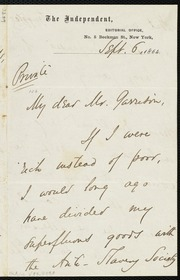 The Independent,
EDITORIAL OFFICE,
No. 5 Beekman St., New York,
Sept. 6, 1864
Private
My dear Mr. Garrison,
If I were
rich instead of poor,
I would long ago
have divided my
superfluous goods with
the Anti-Slavery Society